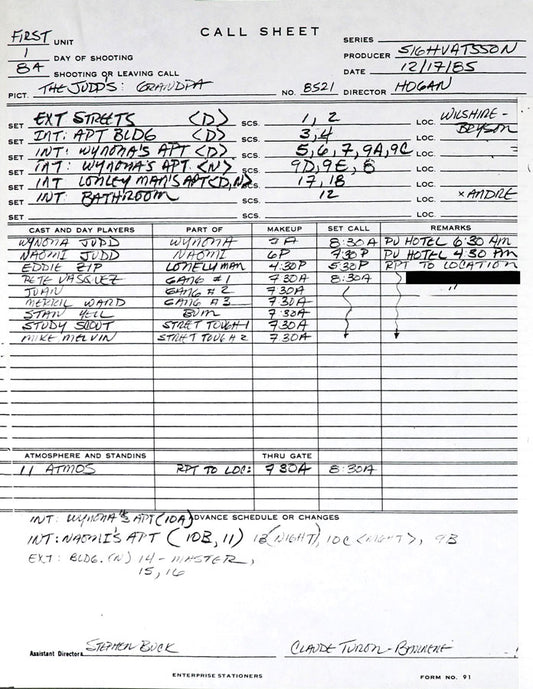 CALL SHEET
FIRST UNIT SERIES
1 DAY OF SHOOTING PRODUCER SIGHVATSSON
8A SHOOTING OR LEAVING CALL DATE 12/17/85
PICT. THE JUDD'S: GRANDPA NO. 8521 DIRECTOR HOGAN
SET EXT STREETS <D> SCS. 1, 2 LOC. WILSHIRE -
SET INT: APT BLDG <D> SCS. 3,4 LOC. BRYSON
SET INT: WYNONA'S APT <D> SCS. 5, 6, 7, 9A, 9C LOC.
SET INT: WYNONA'S APT. <N> SCS. 9D, 9E, 8 LOC.
SET INT LONLEY MAN'S APT <D,N> SCS. 17, 18 LOC.
SET INT BATHROOM SCS. 12 LOC. x ANDRE
SET SCS. LOC.
CAST AND DAY PLAYERS PART OF MAKEUP SET CALL REMARKS
WYNONA JUDD WYNONA 7A 8:30A PU HOTEL 6:30 AM
NAOMI JUDD NAOMI 6P 7:30P PU HOTEL 4:30 PM
EDDIE ZIP LONELY MAN 4:30P 5:30P RPT TO LOCATION
PETE VASQUEZ GANG #1 7:30A 8:30A
JUAN GANG #2 7:30A "
MERRIL WARD GANG #3 7:30A
STAN YELL BUM 7:30A
STUDY SCOUT STREET TOUGH-1 7:30A
MIKE MELVIN STREET TOUGH 2 7:30A
ATMOSPHERE AND STANDINS THRU GATE
11 ATMOS RPT TO LOC: 7:30A 8:30A
INT: WYNONA'S APT (10A) ADVANCE SCHEDULE OR CHANGES
INT: NAOMI'S APT (10B, 11) 13 (NIGHT), 10C <NIGHT>, 9B
EXT: BLDG. (N) 14 - MASTER,
15, 16
Assistant Directors STEPHEN BUCK CLAUDE
ENTERPRISE STATIONERS FORM NO. 91